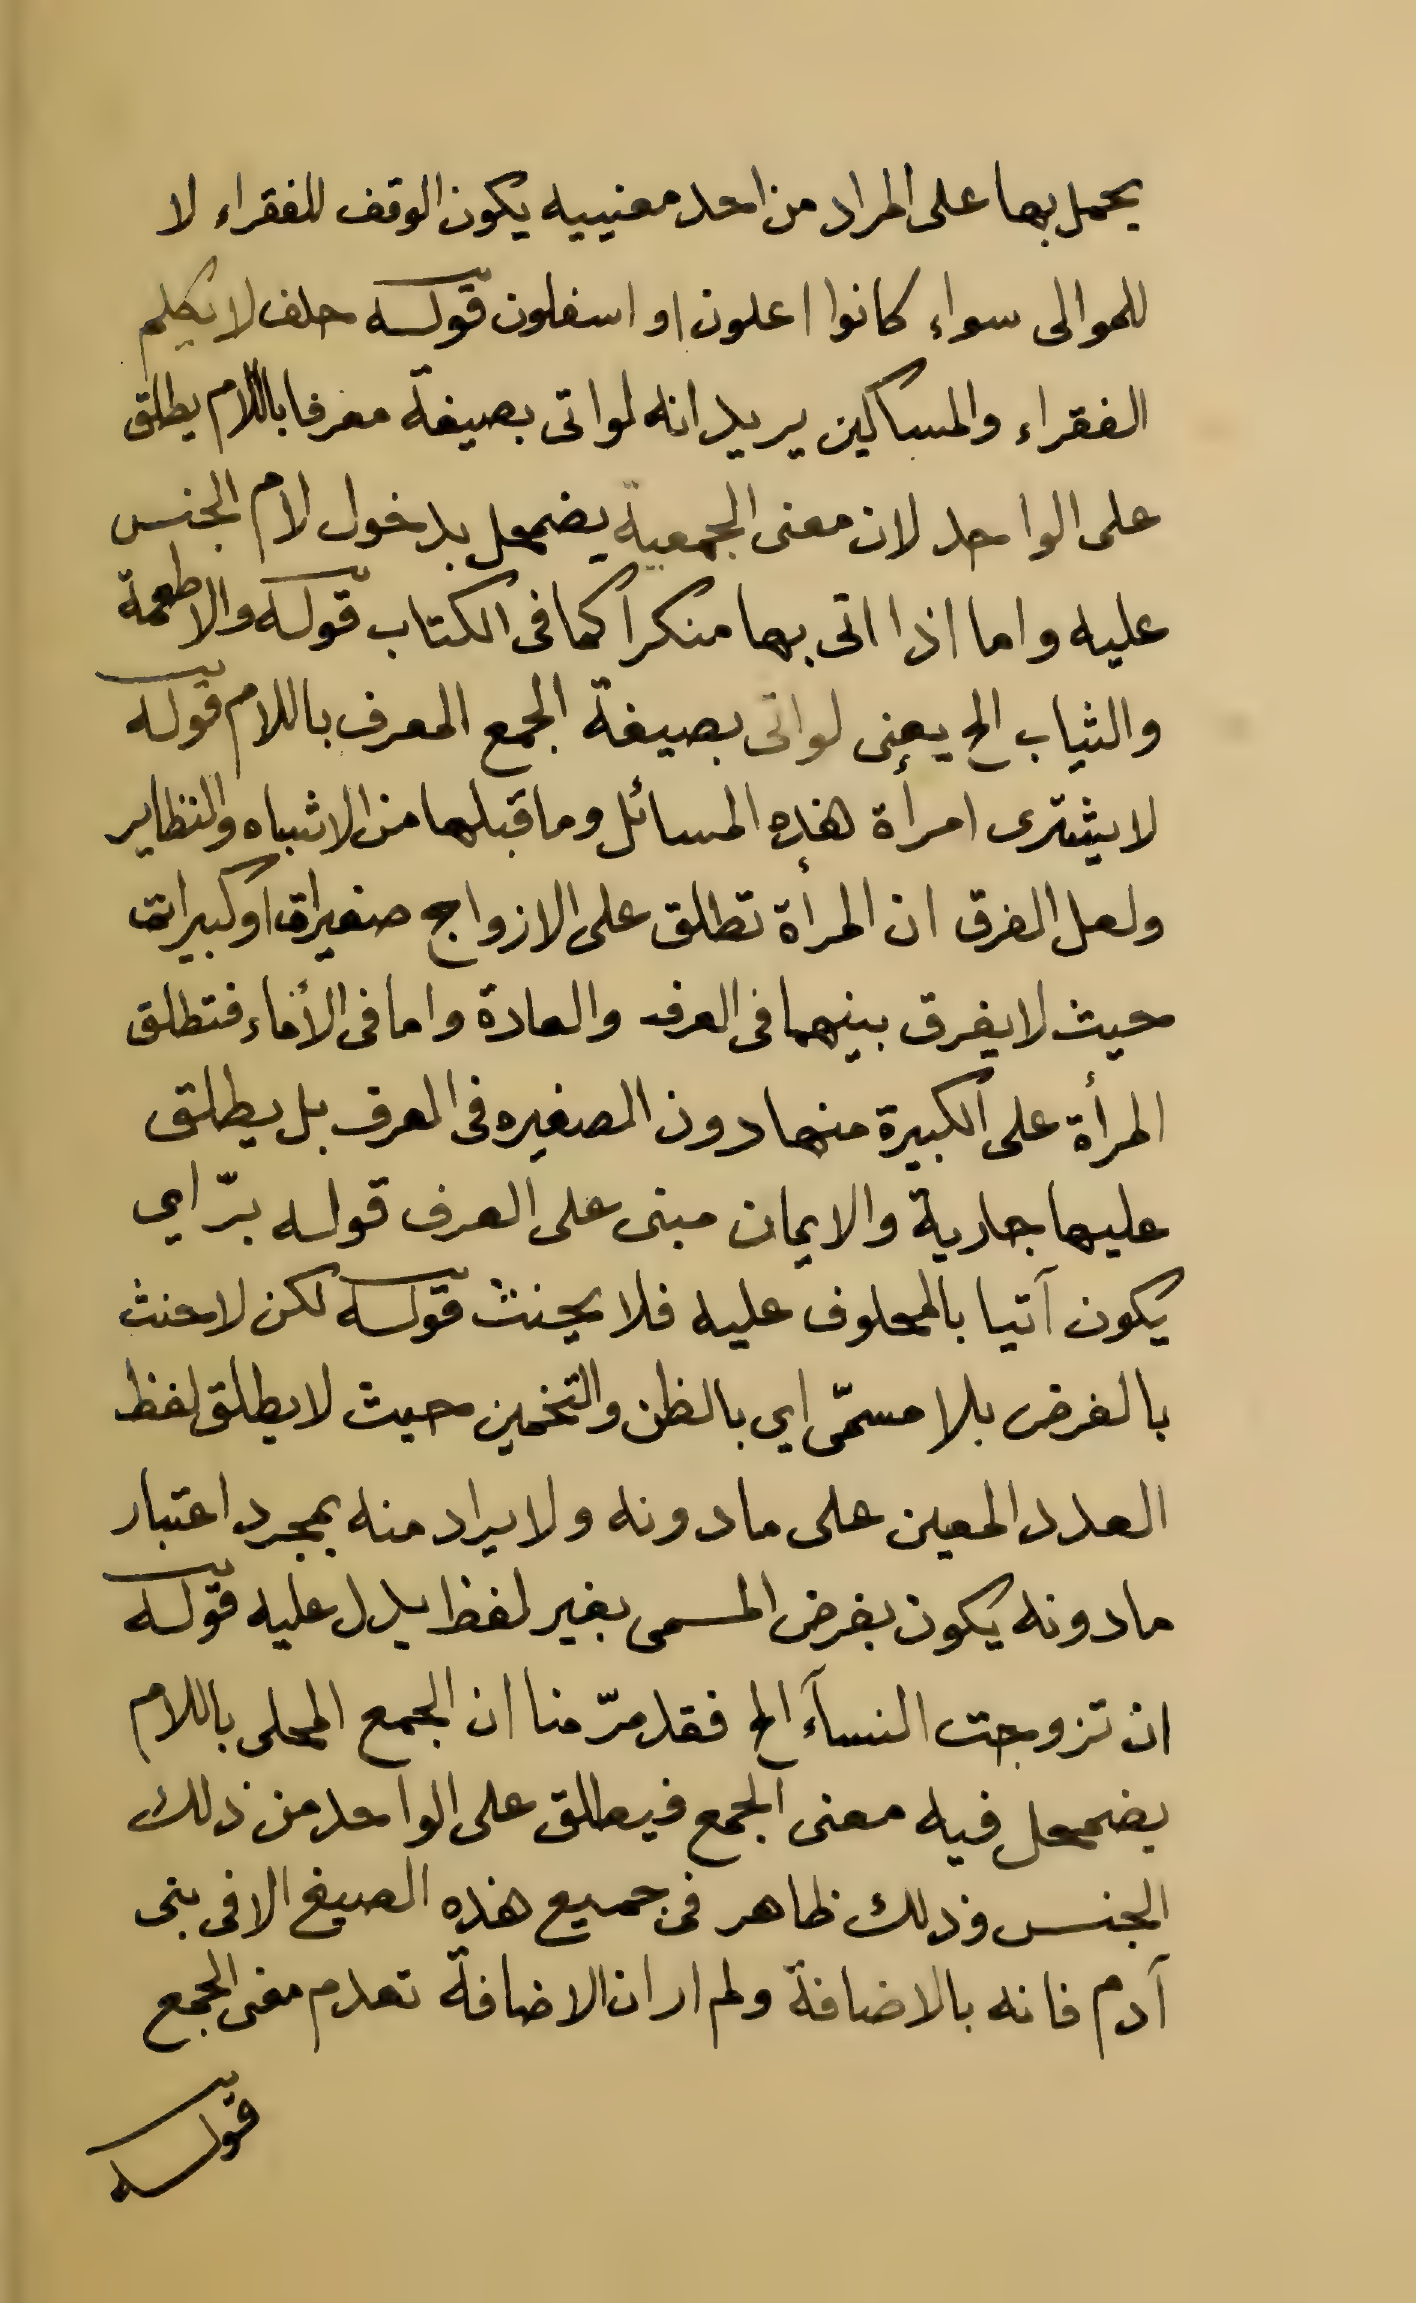 يحمل بها على المراد من احد معنييه يكون الوقف للفقراء لا
للموالى سواء كانوا اعلون او اسفلون قوله حلف لا يكلم
الفقراء والمساكين يريد انه لو اتى بصيغة معرفا باللام يطلق
على الواحد لان معنى الجمعية يضمحل بدخول لام الجنس
عليه واما اذا اتى بها منكرا كما فى الكتاب قوله والاطعمة
والثياب الخ يعنى لو اتى بصيغة الجمع المعرف باللام قوله
لا يشترى امرأة هذه المسائل وما قبلها من الاشباه والنظاير
ولعل الفرق ان المرأة تطلق على الازواج صغيرات او كبيرات
حيث لا يفرق بينهما فى العرف والعادة واما فى الأماء فتطلق
المرأة على الكبيرة منها دون الصغيره فى العرف بل يطلق
عليها جارية والايمان مبنى على العرف قوله برّ اي
يكون آتيا بالمحلوف عليه فلا يحنث قوله لكن لا حنث
بالفرض بلا مسمّى اي بالظن والتخمين حيث لا يطلق لفظ
العدد المعين على ما دونه ولا يراد منه بمجرد اعتبار
ما دونه يكون بفرض المسمى بغير لفظ يدل عليه قوله
ان تزوجت النسآء الخ فقد مرّ منا ان الجمع المحلى باللام
يضمحل فيه معنى الجمع فيطلق على الواحد من ذلك
الجنس وذلك ظاهر فى جميع هذه الصيغ الا فى بنى
آدم فانه بالاضافة ولم ار ان الاضافة تعدم معنى الجمع
قوله